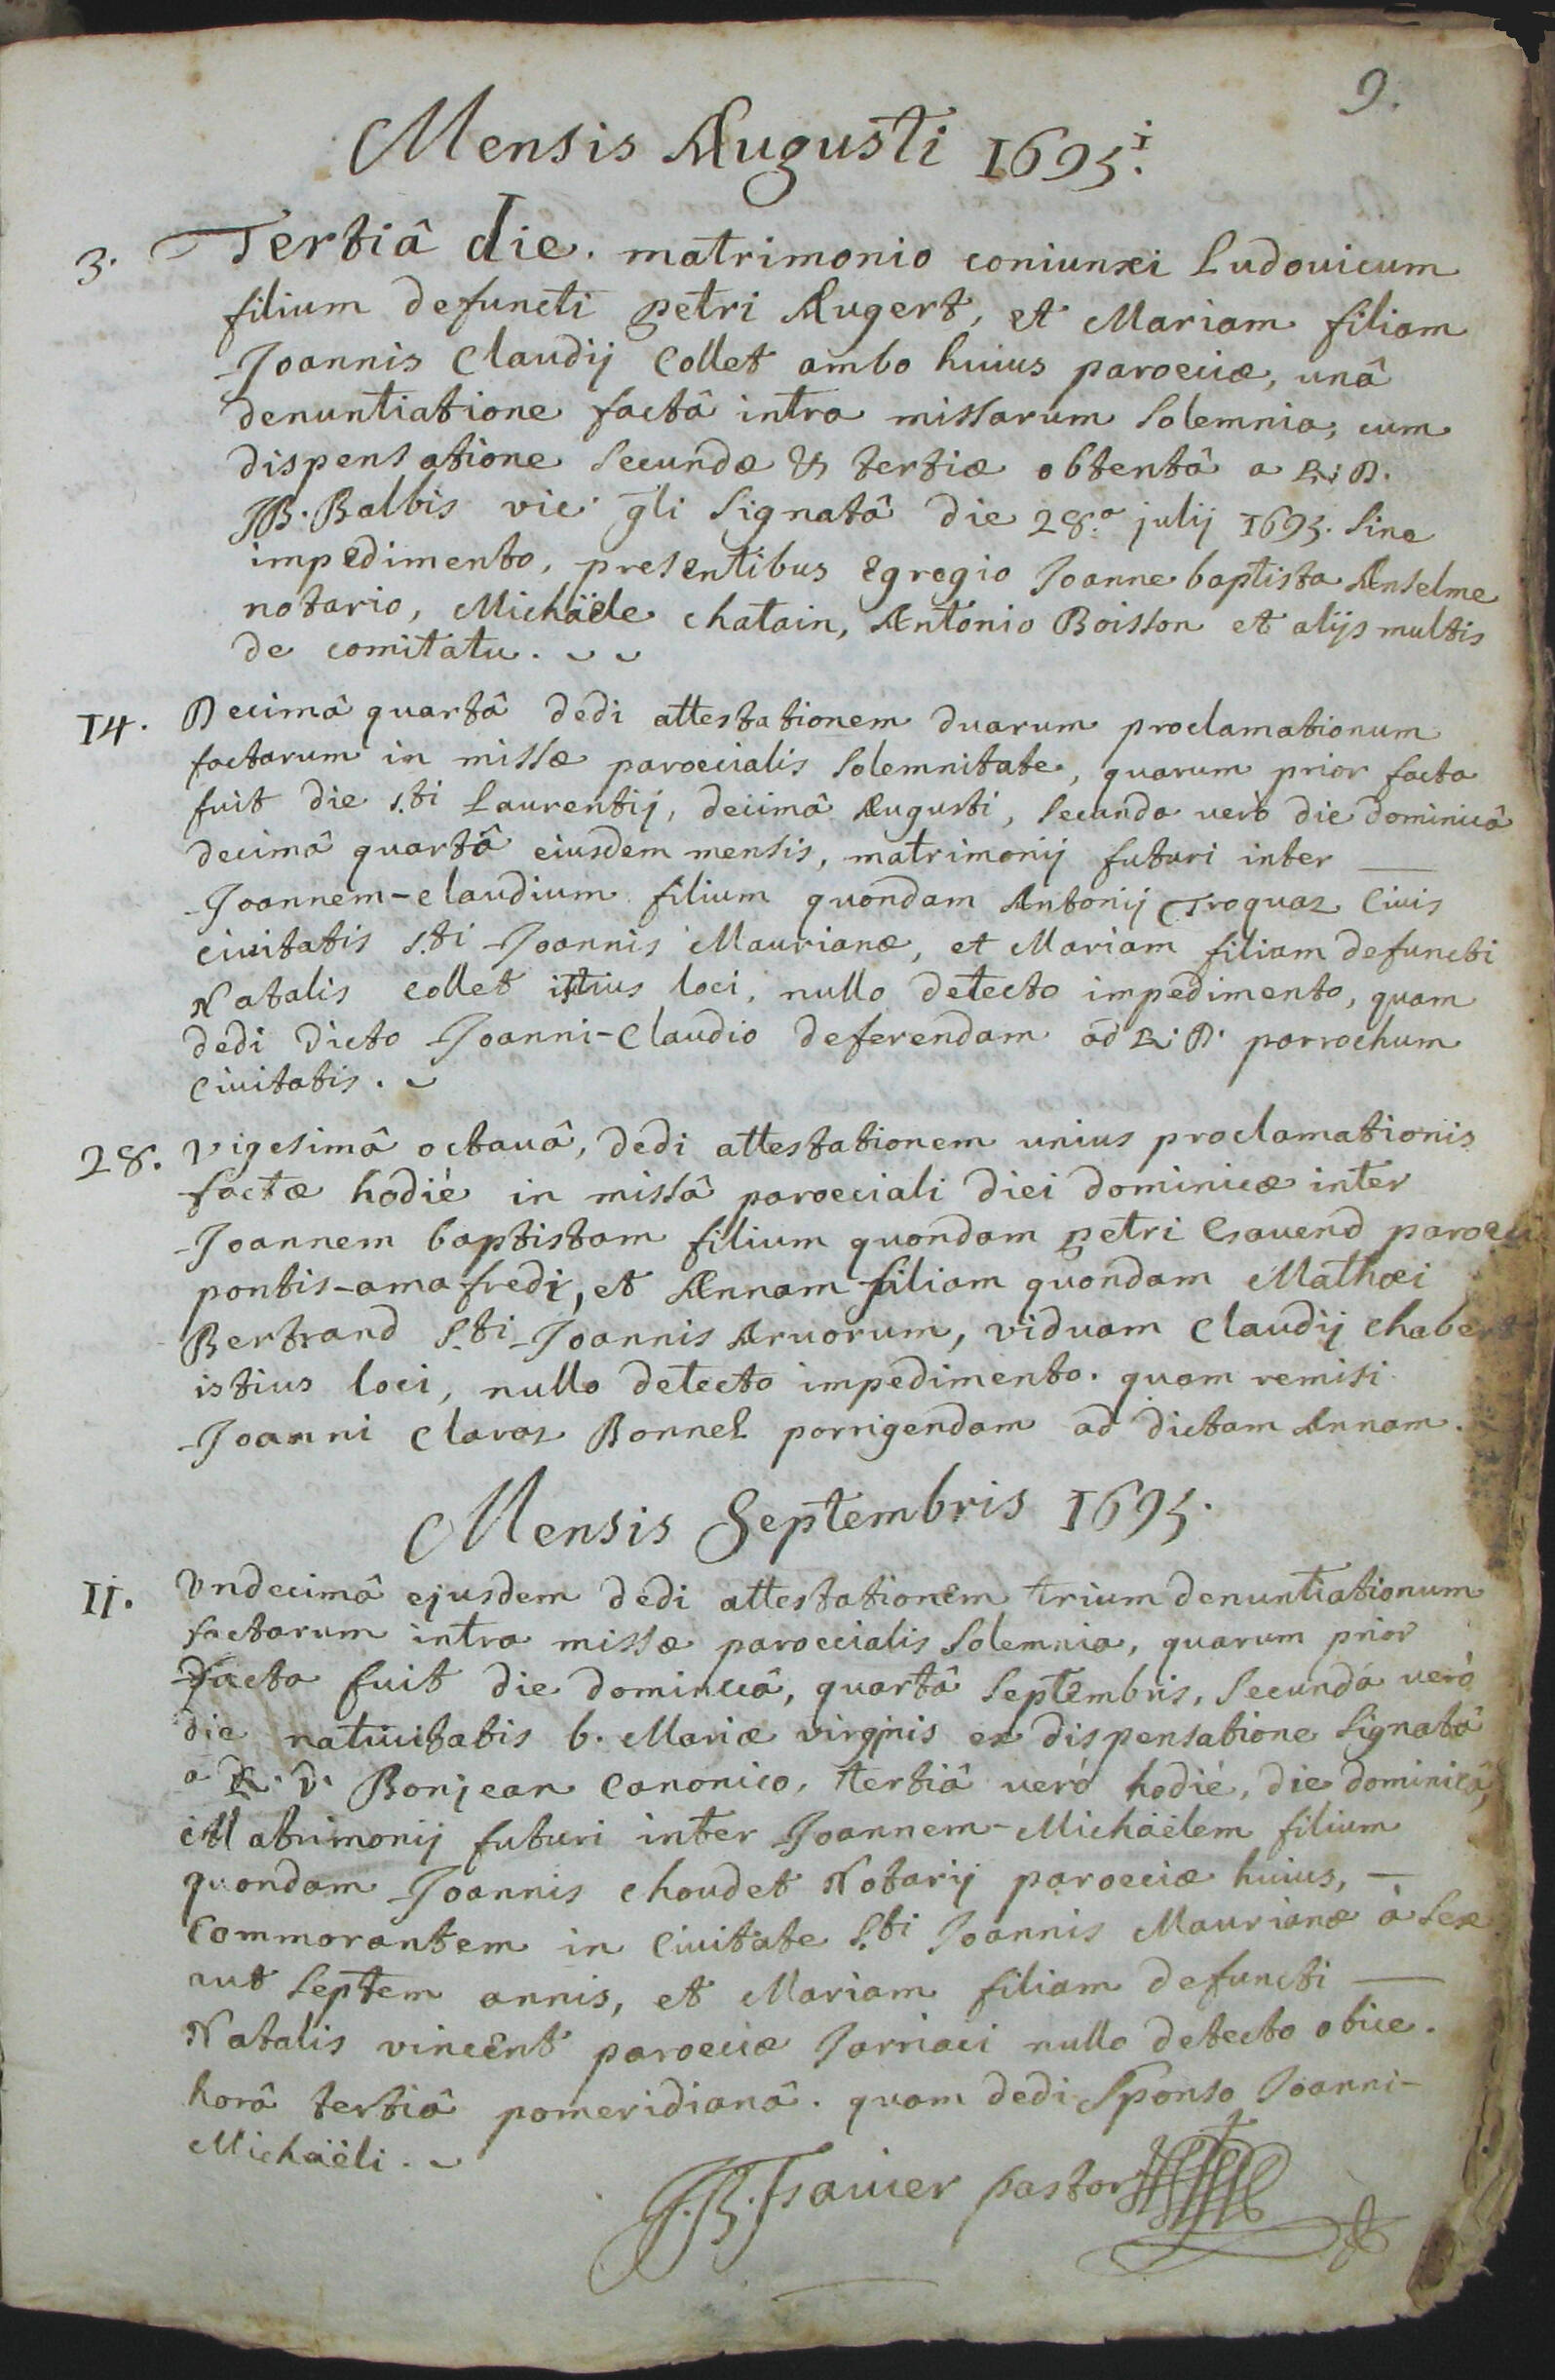 9.
Mensis Augusti 1695.i
3. Tertiâ die. matrimonio coniunxi Ludouicum
filium defuncti petri Augert, et Mariam filiam
Joannis Claudij Collet ambo huius paroeciæ, unâ
denuntiatione factâ intra missarum solemnia, cum
dispensatione secundæ & tertiæ obtentâ a R: D.
JB. Balbis vic: gli signatâ die 28.a julij 1695. sine
impedimento, presentibus Egregio Joanne baptista Anselme
notario, Michäele chatain, Antonio Boisson et alijs multis
de comitatu.
14. Decimâ quartâ dedi attestationem duarum proclamationum
factarum in missæ paroecialis solemnitate, quarum prior facta
fuit die s.ti Laurentij, decimâ Augusti, secunda verò die dominicâ
decimâ quartâ eiusdem mensis, matrimonij futuri inter
Joannem-claudium filium quondam Antonij Troquaz Ciuis
ciuitatis s.ti Joannis Maurianæ, et Mariam filiam defuncti
Natalis collet istius loci, nullo detecto impedimento, quam
dedi dicto Joanni-Claudio deferendam ad R: D. parrochum
Ciuitatis.
28. vigesimâ octauâ, dedi attestationem unius proclamationis
factæ hodié in missâ paroeciali diei dominicæ inter
Joannem baptistam filium quondam petri paroeci
pontis-amafredi, et Annam filiam quondam Mathæi
Bertrand s.ti Joannis Aruorum, viduam Claudij chabert
istius loci, nullo detecto impedimento. quam remisi
Joanni Claraz Bonnel porrigendam ad dictam Annam.
Mensis Septembris 1695.
11. Vndecimâ ejusdem dedi attestationem trium denuntiationum
factarum intra missæ paroecialis solemnia, quarum prior
facta fuit die dominicâ, quartâ septembris, secunda verò
die natiuitatis b. Mariæ virginis ex dispensatione signatâ
a R. D. Bonjean Canonico, tertiâ veró hodié, die dominicâ,
Matrimonij futuri inter Joannem-Michäelem filium
quondam Joannis choudet Notarij paroeciæ huius,
Commorantem in Ciuitate S.ti Joannis Maurianæ à sex
aut septem annis, et Mariam filiam defuncti
Natalis vincent paroeciæ Jarriaci nullo detecto obice.
horâ tertiâ pomeridianâ. quam dedi sponso Joanni-
Michäeli.
J.B. pastor